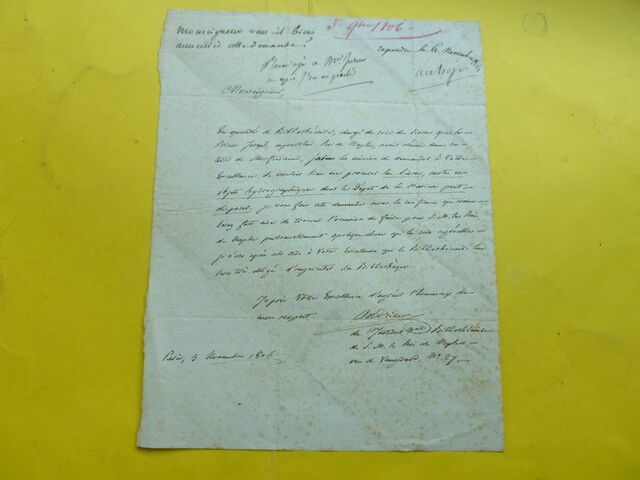 Monseigneur veut il bien
accueillir cette demande ?
3. 9bre 1806.
répondu le 6 Novembre
Renvoyé à Mr
à qui j'en ai parlé
Monseigneur,
En qualité de Bibliothécaire, chargé du soin des livres que le
Prince Joseph, aujourd'hui Roi de Naples, avait réunis dans sa
terre de Morfontaine, j'ai la mission de demander à Votre
Excellence de vouloir bien me procurer les livres, cartes ou
objets hydrographiques dont le Dépôt de la Marine peut
disposer. je vous fais cette demande avec la confiance que vous
serez fort aise de trouver l'occasion de faire pour S. M. le Roi
de Naples personnellement quelque chose qui lui soit agréable.
je n'ose après cela dire à Votre Excellence que le Bibliothécaire lui
sera très obligé d'augmenter sa Bibliothèque.
Je prie Votre Excellence d'agréer l'hommage de
mon respect
Andrieux
de l'Institut Nal, Bibliothécaire
de S. M. le Roi de Naples
rue de Vaugirard, No 27.
Paris, 3 Novembre 1806